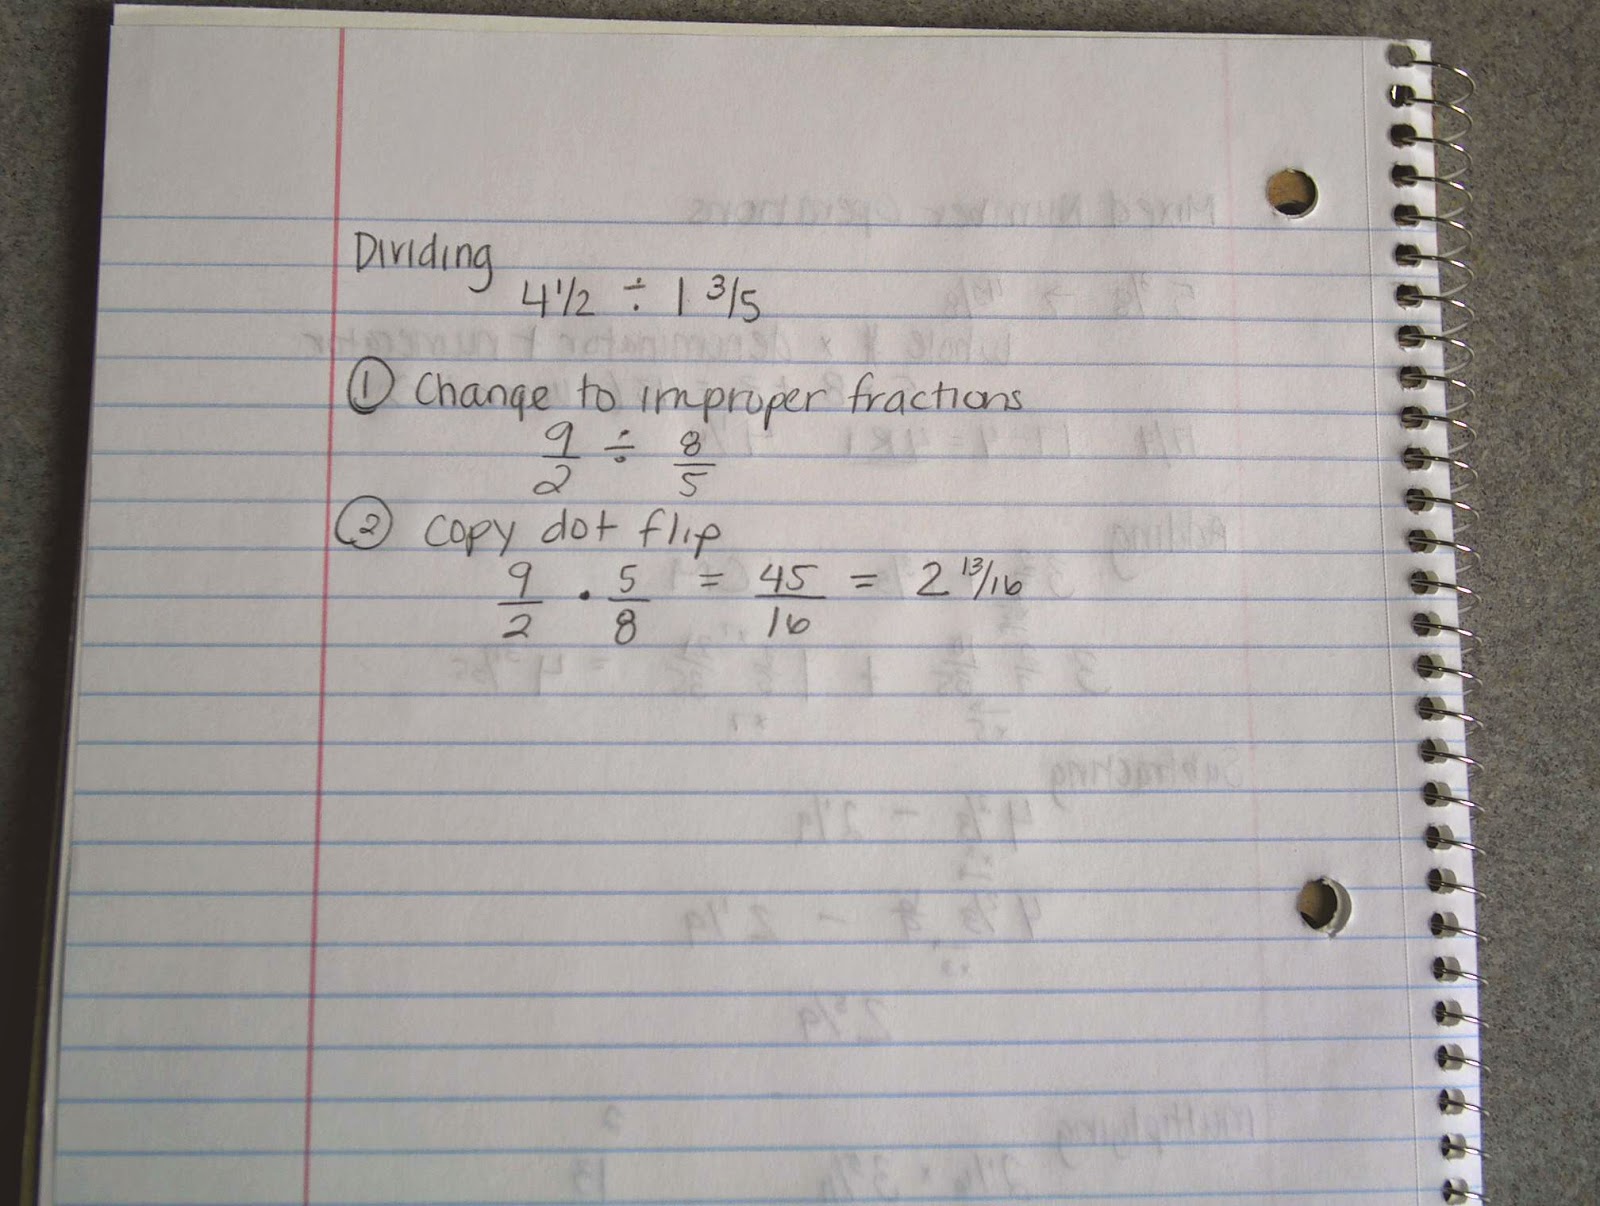 Dividing
4 1/2 ÷ 1 3/5
① Change to improper fractions
9/2 ÷ 8/5
② Copy dot flip
9/2 · 5/8 = 45/16 = 2 13/16